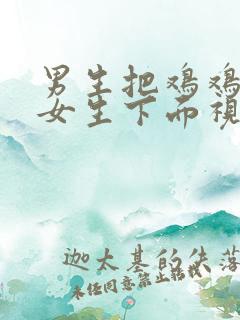 男生把鸡鸡
女生下面视
迦太基的失落
未经同意禁止转载